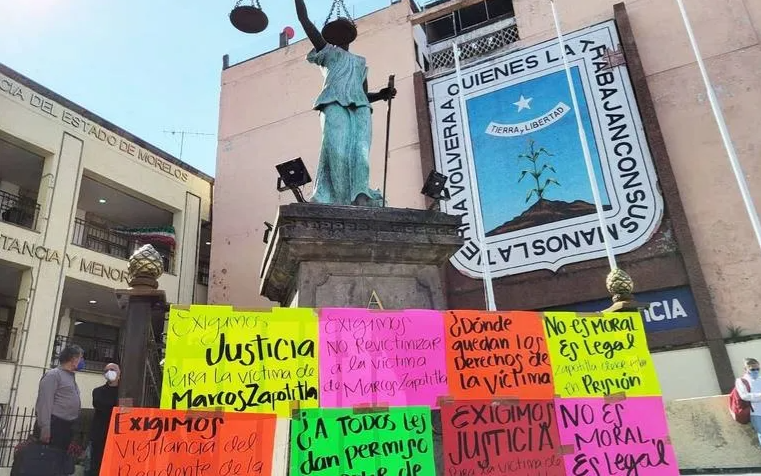 CIA DEL ESTADO DE MORELOS
TANCIA Y MENOR
LA TIERRA VOLVERÁ A QUIENES LA TRABAJAN CON SUS MANOS
TIERRA Y LIBERTAD
ICIA
Exigimos
JUSTICIA
Para la víctima de
Marcos Zapotitla
Exigimos NO
Revictimizar
a la víctima
de Marcos Zapotitla
¿Dónde
quedan los
Derechos de
la víctima
No es MORAL
Es Legal
en Prisión
Exigimos
Vigilancia del
de la
¿A Todos les
dan permiso
de
EXIGIMOS
JUSTICIA
Para la víctima de
No es
MORAL,
Es Legal